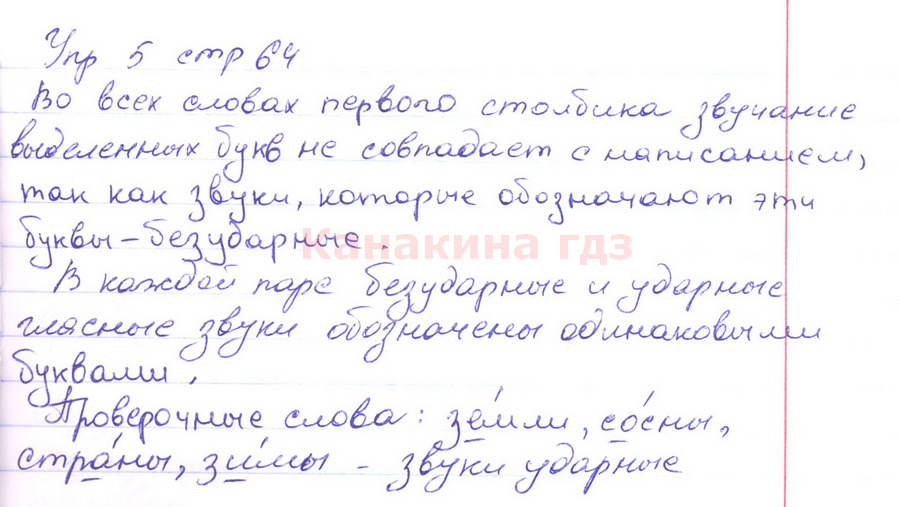 Упр 5 стр 64
Во всех словах первого столбика звучание
выделенных букв не совпадает с написанием,
так как звуки, которые обозначают эти
буквы – безударные.
Канакина гдз
В каждой паре безударные и ударные
гласные звуки обозначены одинаковыми
буквами.
Проверочные слова: зе́мли, со́сны,
стра́ны, зи́мы – звуки ударные